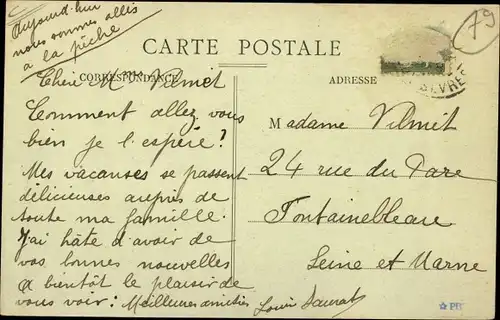 Aujourd'hui
nous sommes allés
à la pêche
79
CARTE POSTALE
CORRESPONDANCE
ADRESSE
SEVRES
Chère Me Vilmet
Comment allez vous
bien je l'espère?
Mes vacances se passent
délicieuses auprès de
toute ma famille.
J'ai hâte d'avoir de
vos bonnes nouvelles
A bientôt le plaisir de
vous voir: Meilleures amitiés
Louis
Madame Vilmet
24 rue du Parc
Fontainebleau
Seine et Marne
PB